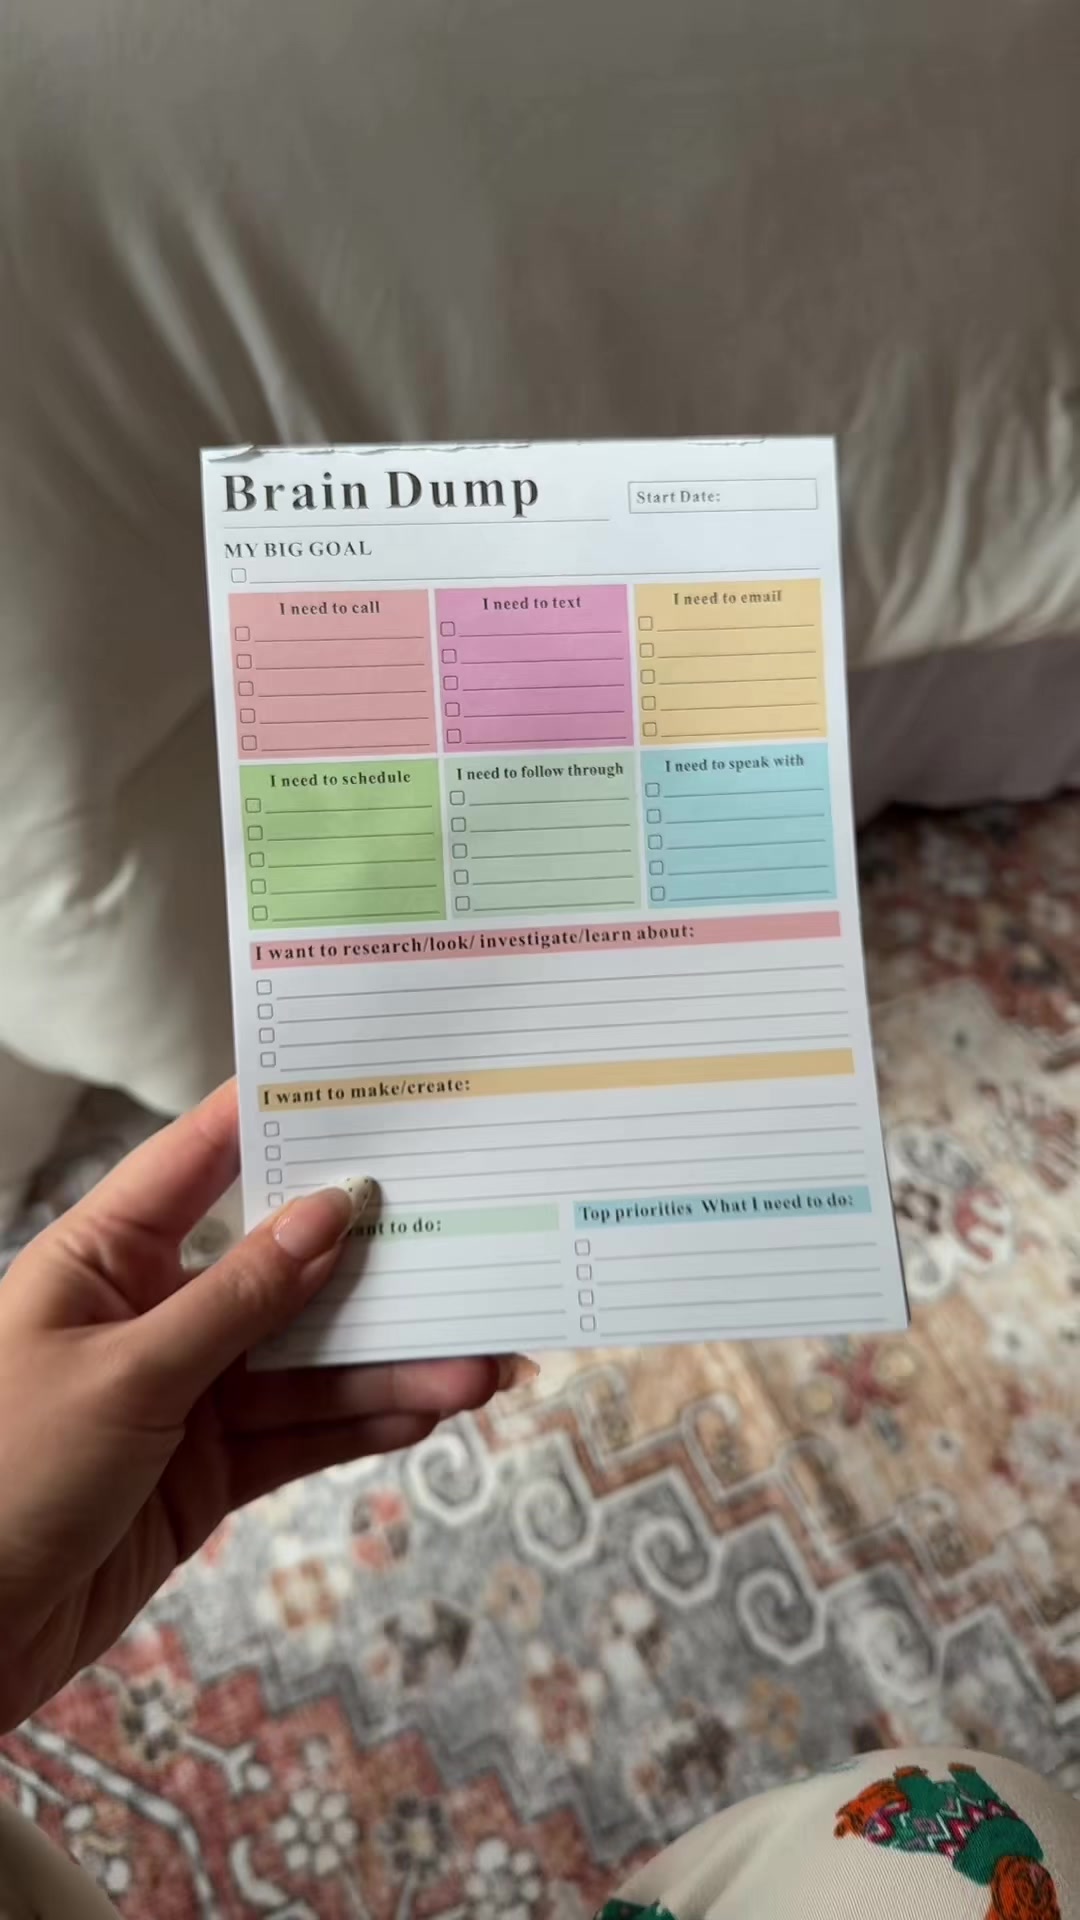 Brain Dump
Start Date:
MY BIG GOAL
I need to call
I need to text
I need to email
I need to schedule
I need to follow through
I need to speak with
I want to research/look/ investigate/learn about:
I want to make/create:
to do:
Top priorities What I need to do: